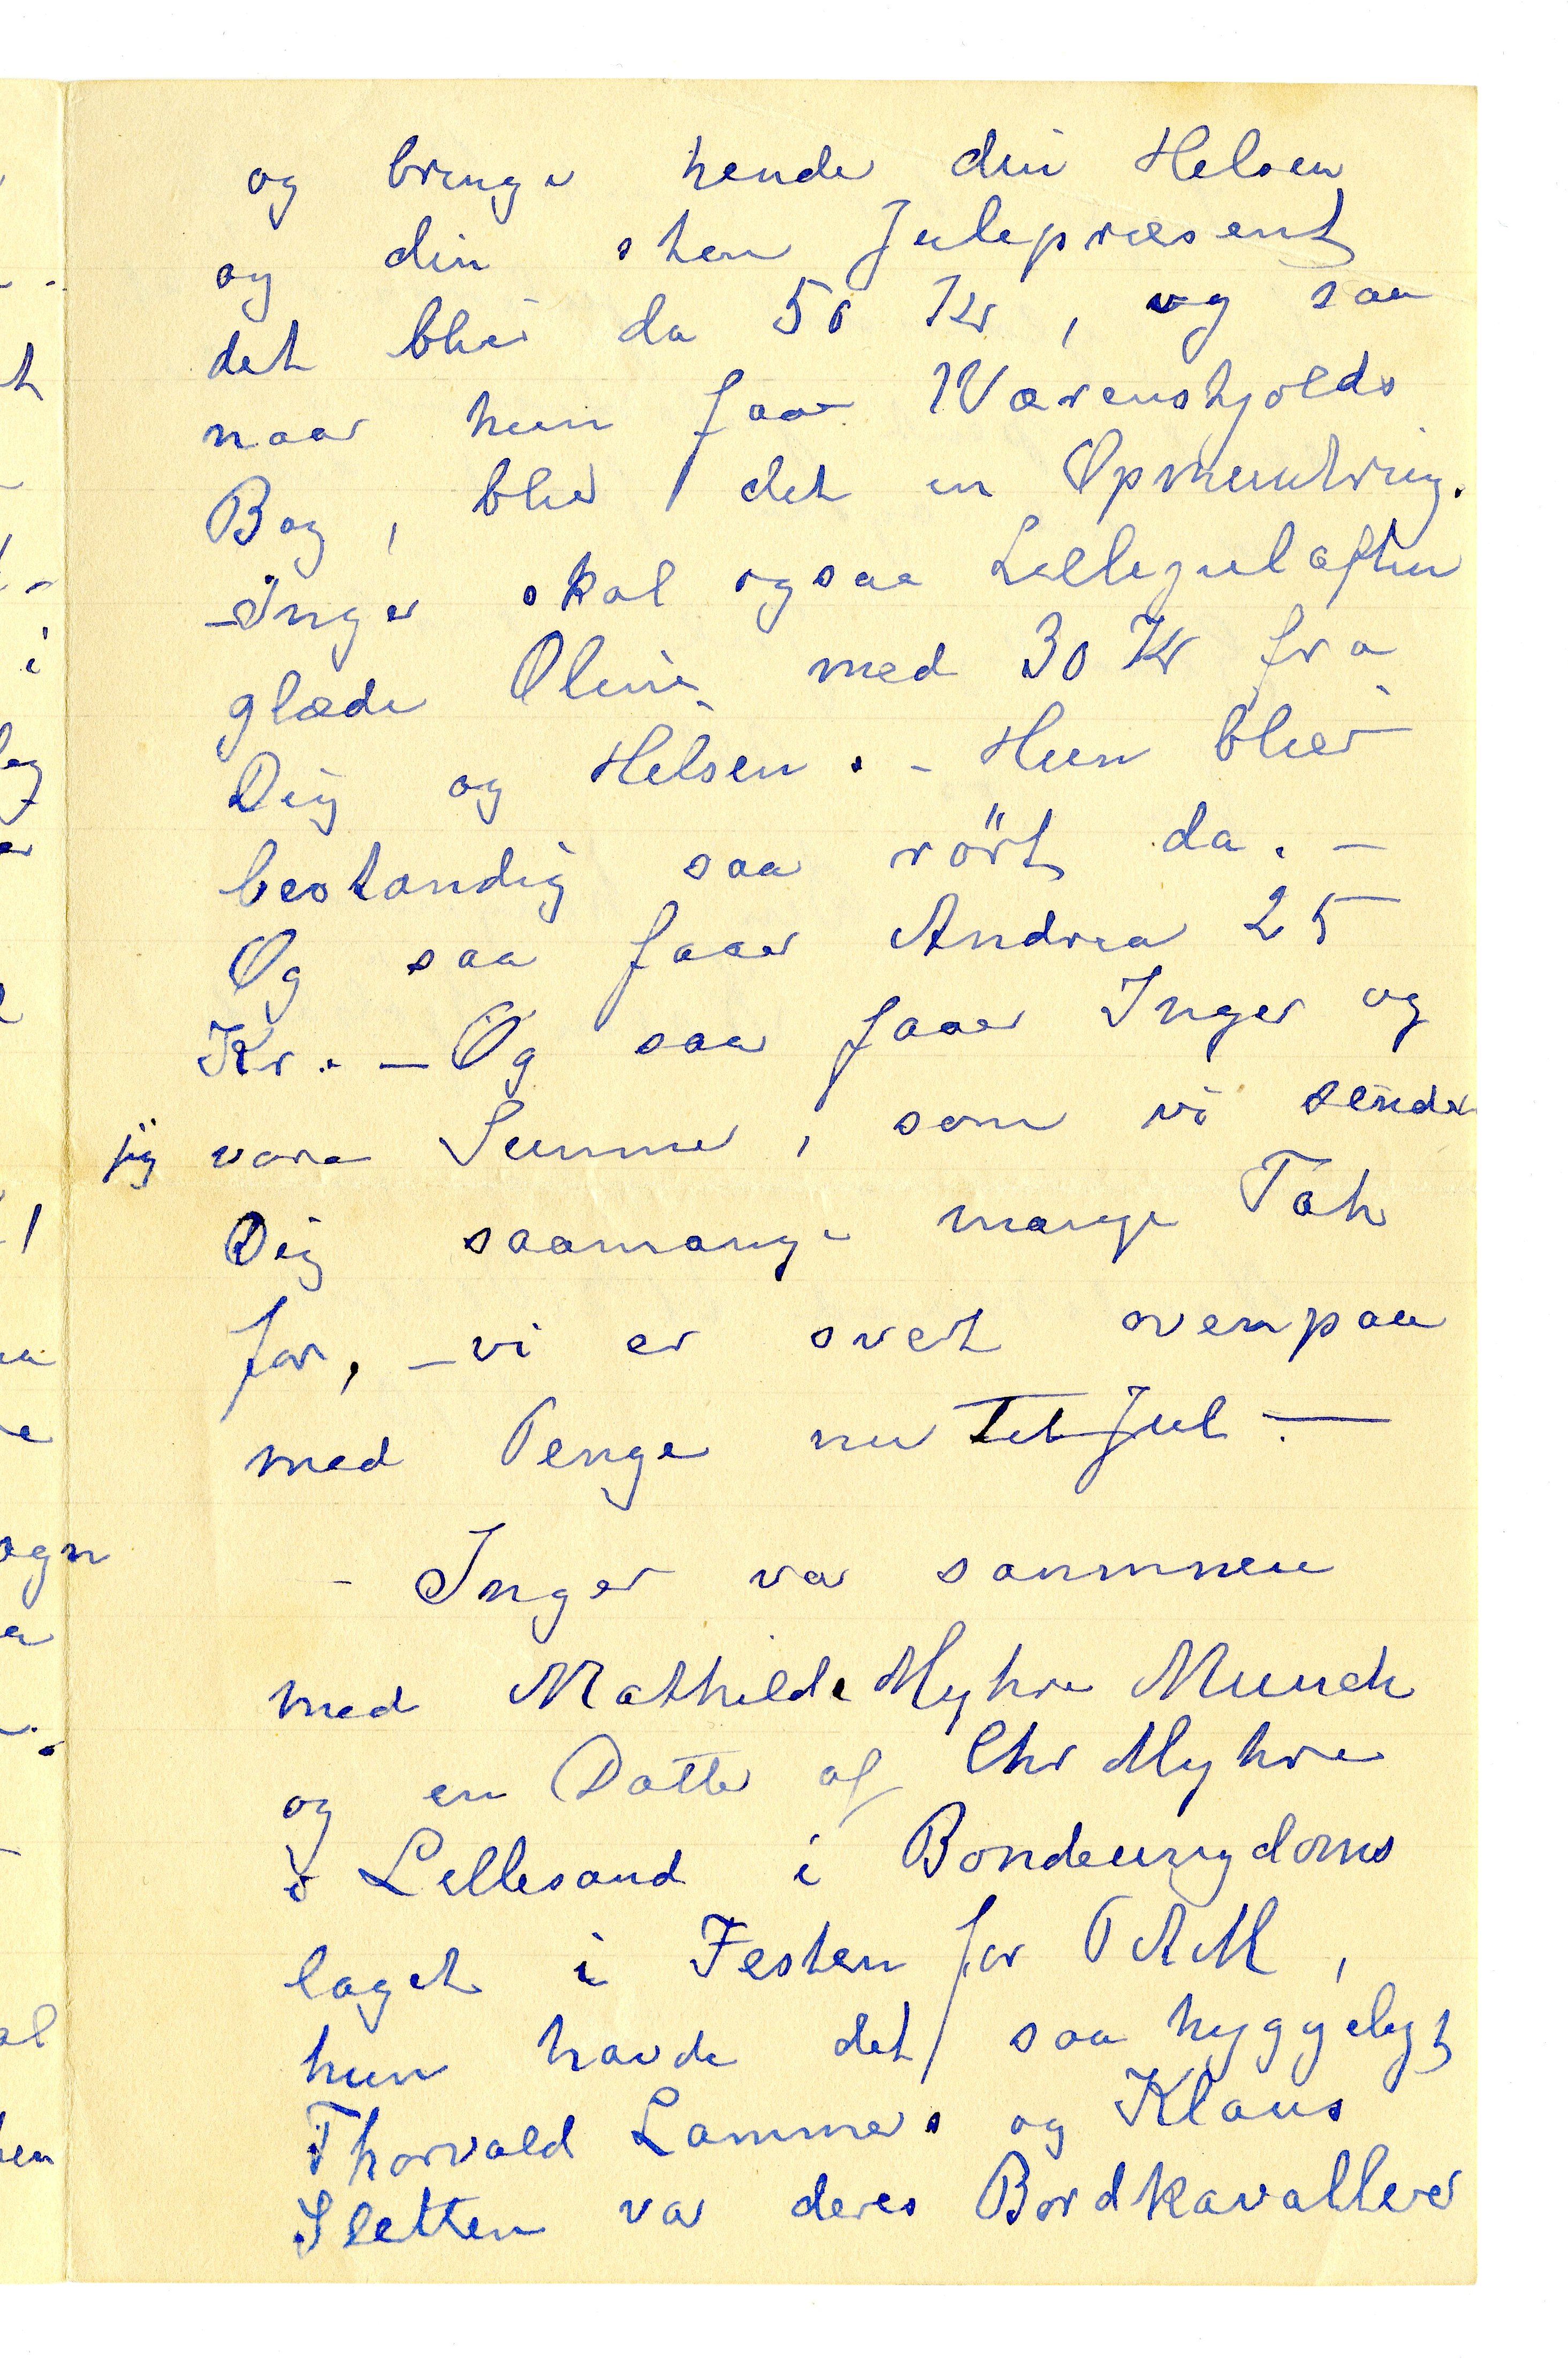 og bringe hende din Helsen
og din store Julepræsent
det blir da 50 Kr, og saa
naar hun faar Wærenskjolds
Bog, blir det en Opmuntring.
- Inger skal ogsaa Lillejulaften
glæde Oline med 30 Kr fra
Dig og Helsen. - Hun blir
bestandig saa rört da. -
Og saa faar Andrea 25
Kr. - Og saa faar Inger og
jeg vore Summer, som vi sender
Dig saamange mange Tak
for, - vi er svert ovenpaa
med Penge nu Til Jul. -
- Inger var sammen
med Mathilde Myhre Munch
og en Datter af Chr Myhre
i Lillesand i Bondeungdoms
laget i Festen for PAM,
hun havde det saa hyggeligt
Thorvald Lammers og Klaus
Sletten var deres Bordkavallerer